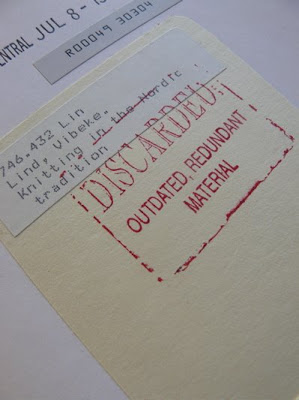 CENTRAL JUL 8-
R00049 30304
746.432 Lin
Lind, Vibeke.
Knitting in the Nordic
tradition
DISCARDED
OUTDATED, REDUNDANT
MATERIAL